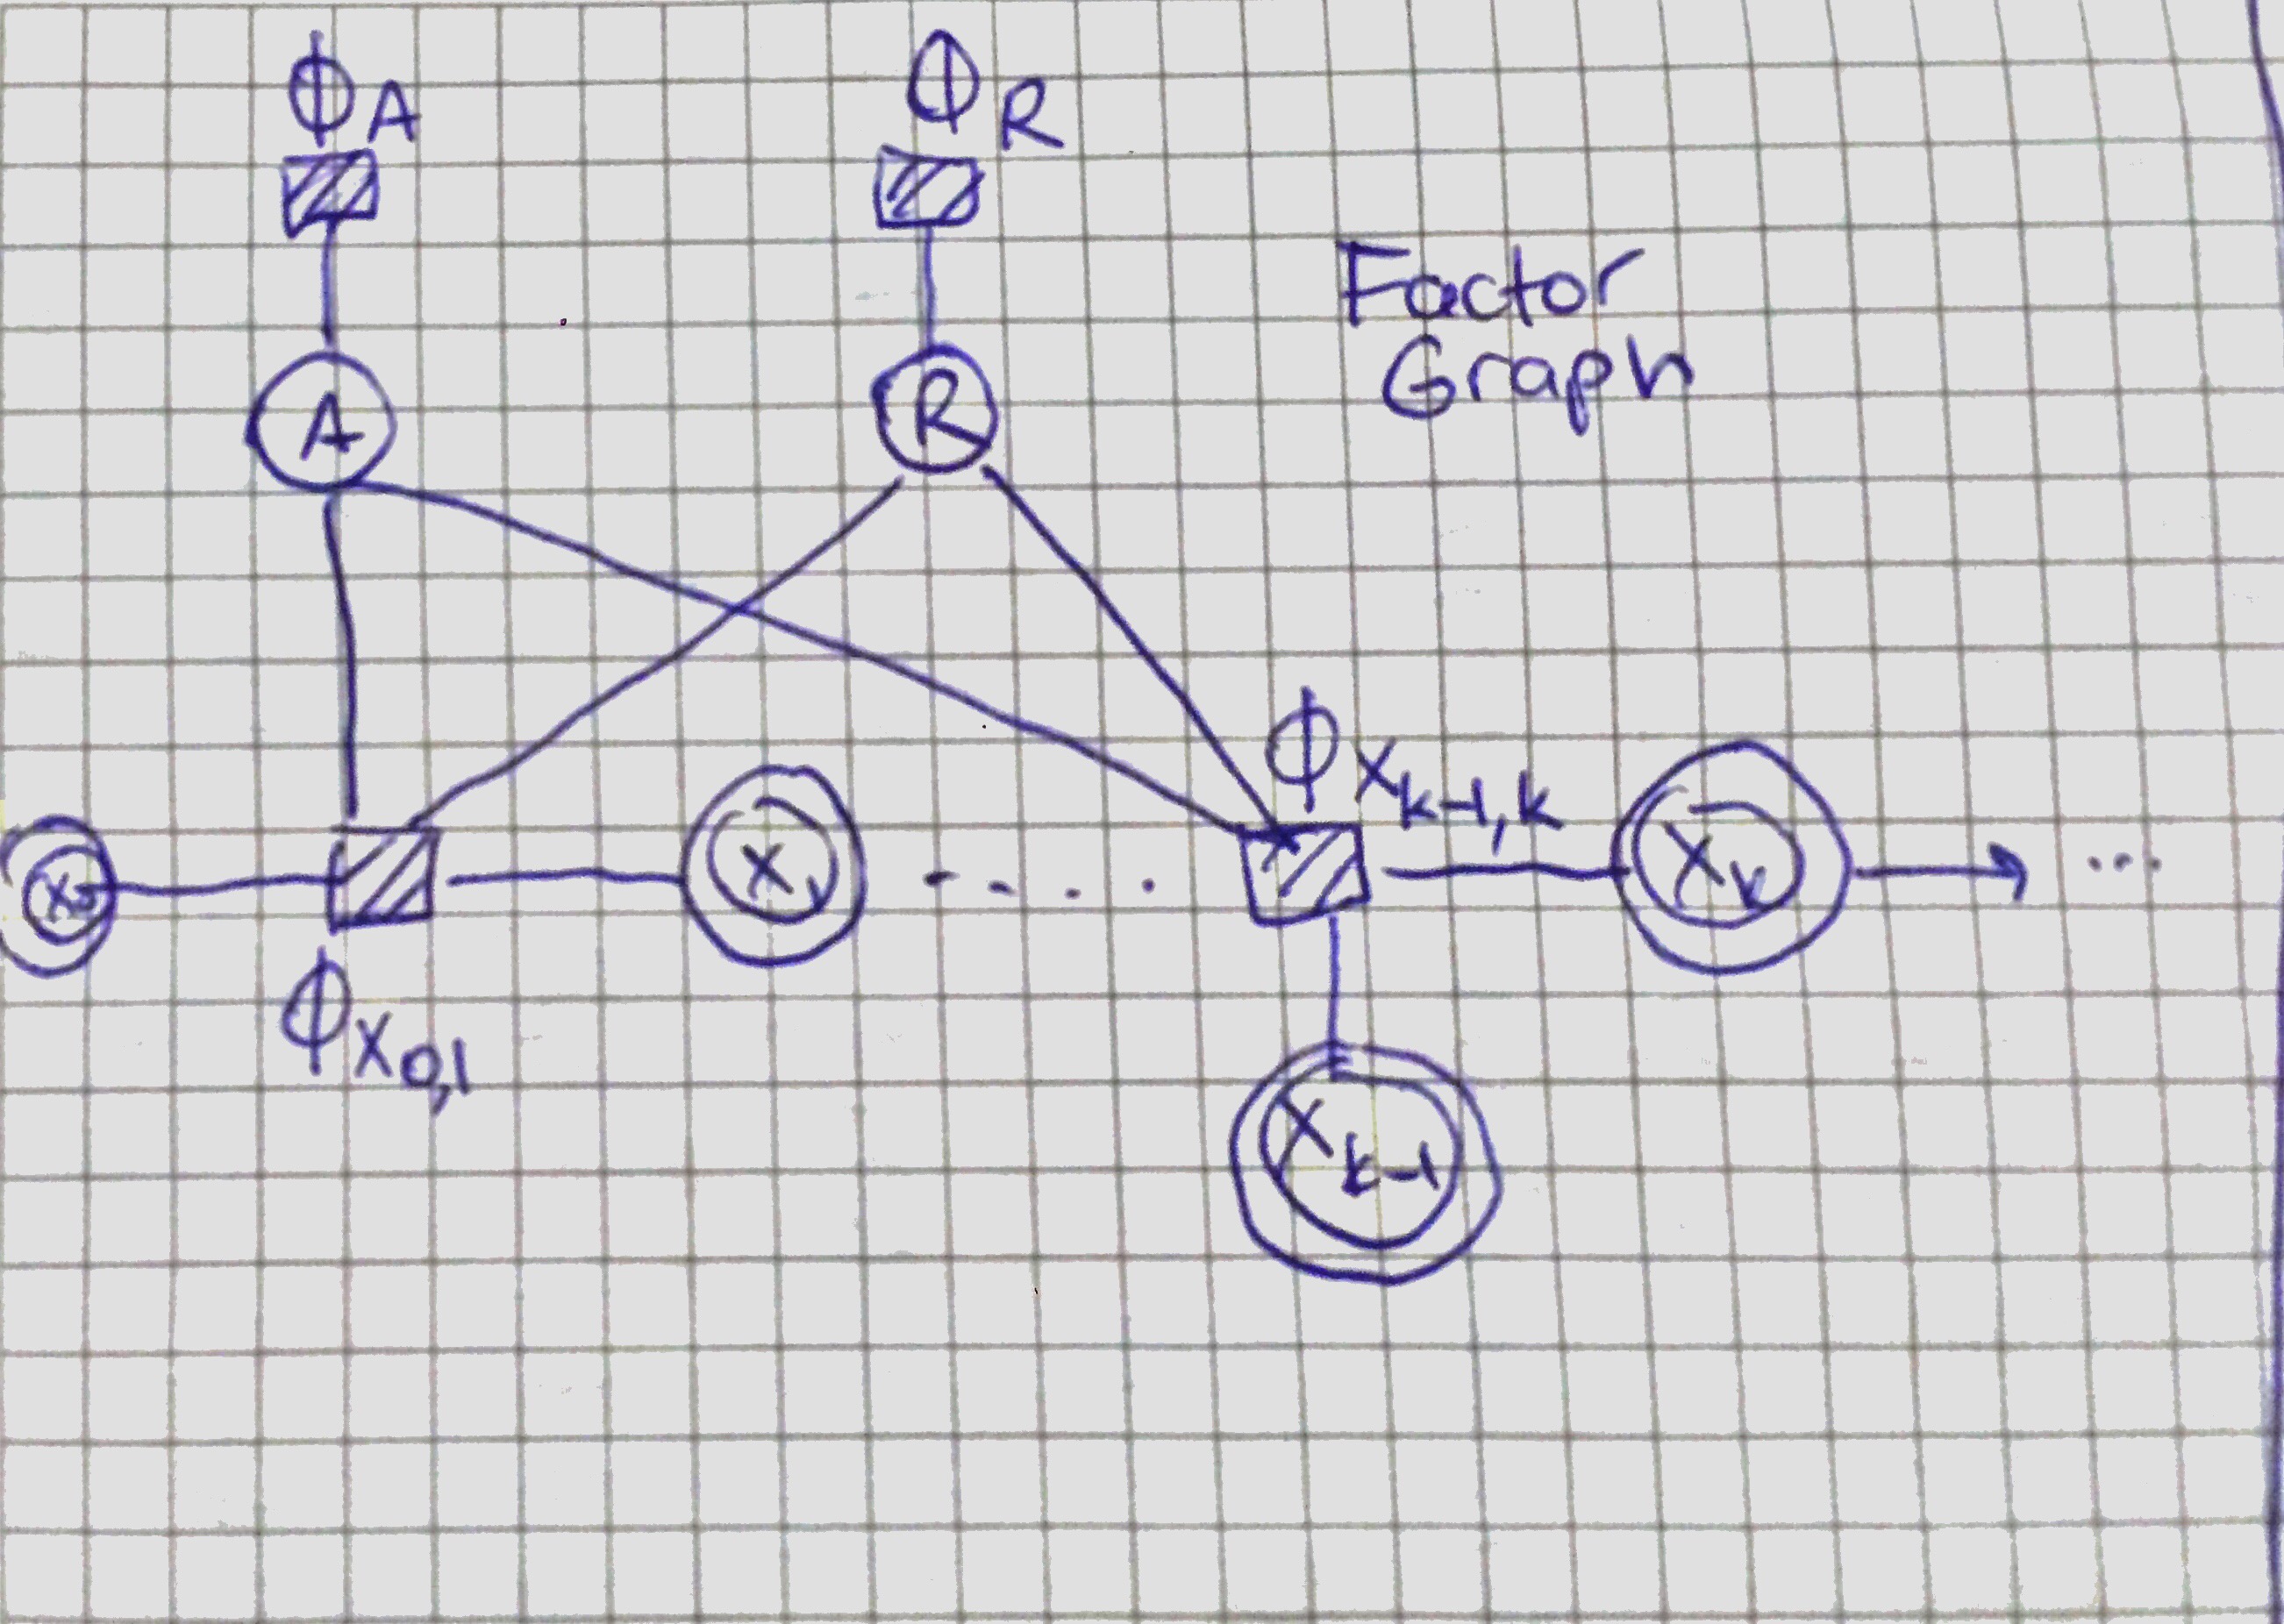 ϕ_A
ϕ_R
Factor
Graph
A
R
ϕ_{x_{k-1,k}}
x_0
x_1
....
x_k
...
ϕ_{x_{0,1}}
x_{k-1}